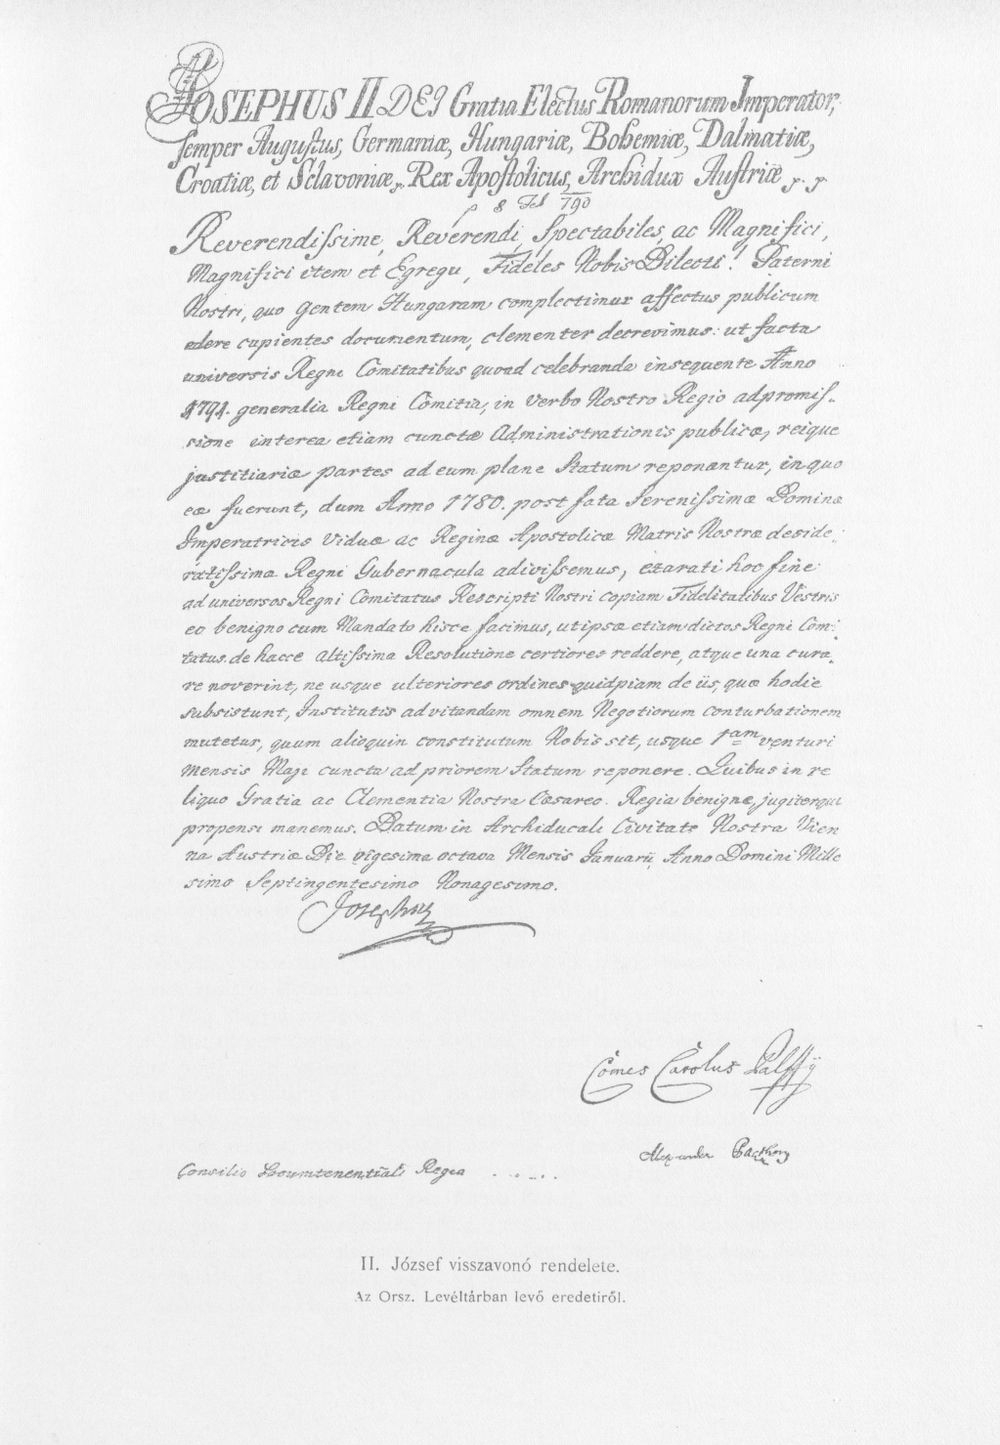 JOSEPHUS II DEI Gratia Electus Romanorum Imperator,
semper Augustus, Germaniæ, Hungariæ, Bohemiæ, Dalmatiæ,
Croatiæ, et Sclavoniæ, Rex Apostolicus, Archidux Austriæ p. p.
8 Feb 790
Reverendissime, Reverendi, Spectabiles, ac Magnifici,
Magnifici item et Egregii, Fideles Nobis Dilecti! Paterni
Nostri, quo gentem Hungaram complectimur affectus publicum
edere cupientes documentum, clementer decrevimus: ut facta
universis Regni Comitatibus quoad celebranda insequente Anno
1791. generalia Regni Comitia, in Verbo Nostro Regio adpromis-
sione interea etiam cunctæ Administrationis publicæ, reique
justitiariæ partes ad eum plane Statum reponantur, in quo
eæ fuerunt, dum Anno 1780. post fata Serenissimæ Dominæ
Imperatricis Viduæ ac Reginæ Apostolicæ Matris Nostræ deside-
ratissimæ Regni Gubernacula adivissemus, exarati hoc fine
ad universos Regni Comitatus Rescripti Nostri copiam Fidelitatibus Vestris
eo benigno cum Mandato hisce facimus, ut ipsæ etiam dictos Regni Comi-
tatus de hacce altissima Resolutione certiores reddere, atque una cura-
re noverint, ne usque ulteriores ordines quidpiam de iis, quæ hodie
subsistunt, Institutis ad vitandam omnem Negotiorum conturbationem
mutetur, quum alioquin constitutum Nobis sit, usque 1am venturi
mensis Maji cuncta ad priorem Statum reponere. Quibus in re
liquo Gratia ac Clementia Nostra Cæsareo Regia benigne, jugiterque
propensi manemus. Datum in Archiducali Civitate Nostra Vien
na Austriæ Die vigesima octava Mensis Januarii, Anno Domini Mille
simo Septingentesimo Nonagesimo.
Josephus
Comes Carolus Palffÿ
Alexander Pászthory
Consilio Locumtenentiali Regio . . . . .
II. József visszavonó rendelete.
Az Orsz. Levéltárban levő eredetiről.